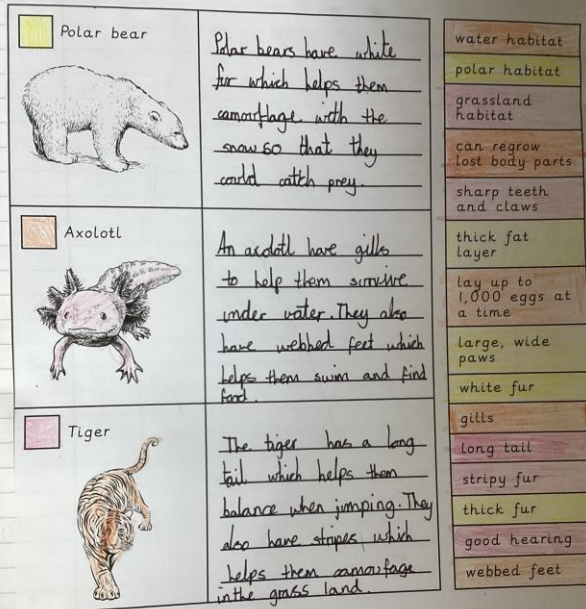 Polar bear
Polar bears have white
fur which helps them
camouflage with the
snow so that they
could catch prey.
Axolotl
An axolotl have gills
to help them survive
under water. They also
have webbed feet which
helps them swim and find
food.
Tiger
The tiger has a long
tail which helps them
balance when jumping. They
also have stripes which
helps them camoufage
in the grass land.
water habitat
polar habitat
grassland
habitat
can regrow
lost body parts
sharp teeth
and claws
thick fat
layer
lay up to
1,000 eggs at
a time
large, wide
paws
white fur
gills
long tail
stripy fur
thick fur
good hearing
webbed feet